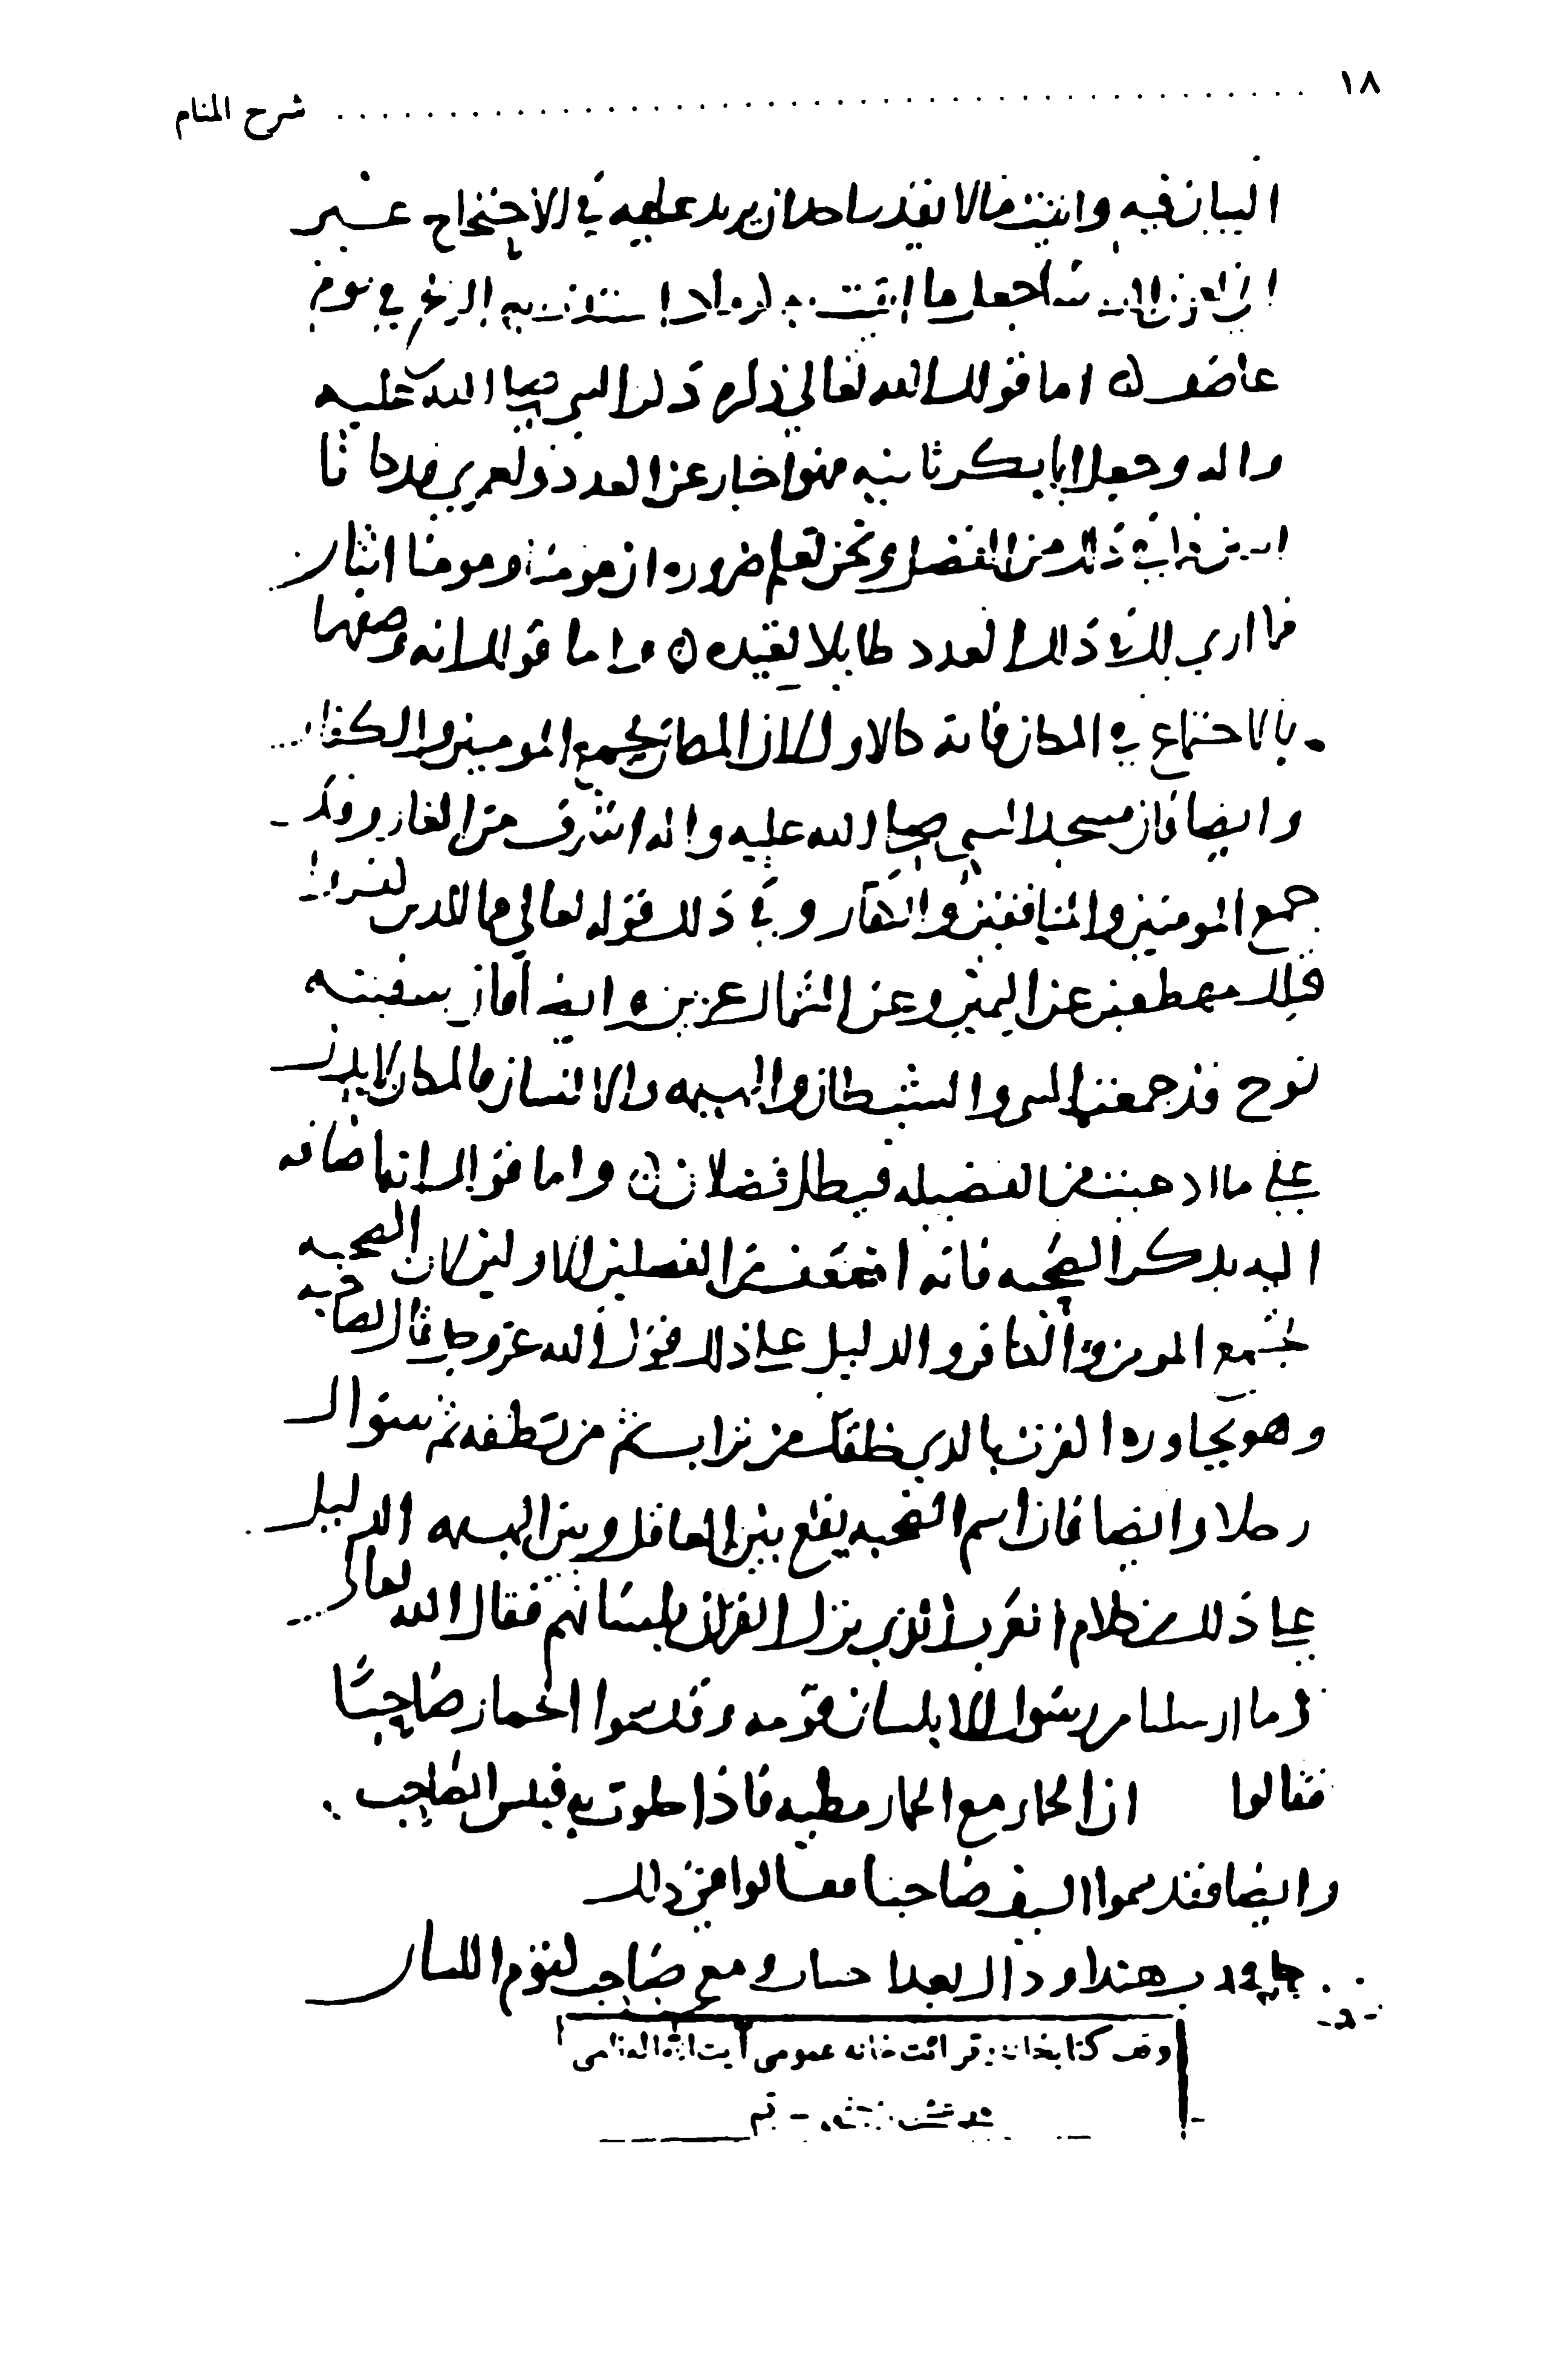 ١٨ شرح المنام
البيان فيه واتيت بما لا يقدر احد ان يزيد عليه في الاحتجاج غير
اني بعون الله ساجعل ما اتيت به كرماد اشتدت به الريح في يوم
عاصف اما قولك ان الله تعالى ذكره ذكر النبي صلى الله عليه
واله وجعل ابا بكر ثانيه فهو اخبار عن العدد ولعمري لقد كانا
اثنين فما في ذلك من الفضل ونحن نعلم ضروره ان مومنا ومومنا اثنان
فما ارى لك في ذكر العدد طايلا تعتمده واما قولك انه وصفهما
بالاجتماع في المكان فانه كالاول لان المكان يجمع المومنين والكفار
وايضا فان مسجد النبي صلى الله عليه واله اشرف من الغار وقد
جمع المومنين والمنافقين والكفار وفي ذلك قوله تعالى فما للذين كفروا
قبلك مهطعين عن اليمين وعن الشمال عزين وايضا فان سفينه
نوح قد جمعت النبي والشيطان والبهيمه والانسان فالمكان لا يدل
على ما ادعيت من الفضيله فبطل فضلان واما قولك انه اضافه
اليه بذكر الصحبه فانه اضعف من الفضلين الاولين لان الصحبه
تجمع المومن والكافر والدليل على ذلك قول الله عز وجل قال لصاحبه
وهو يحاوره اكفرت بالذي خلقك من تراب ثم من نطفه ثم سواك
رجلا وايضا فان اسم الصحبه يقع بين العاقل وبين البهيمه الدليل
على ذلك من كلام العرب الذي نزل القران بلسانهم فقال الله تعالى
وما ارسلنا من رسول الا بلسان قومه وقد سموا الحمار صاحبا
فقالوا ان الحمار مع الحمار مطيه فاذا خلوت به فبئس الصاحب
وايضا فقد سموا السيف صاحبا فقالوا في ذلك
هندا وذاك بعد اجتناب ومعي صاحب كتوم اللسان
وقف كتابخانه و قرائت خانه عمومى آيت الله العظمى
مرعشى نجفى - قم